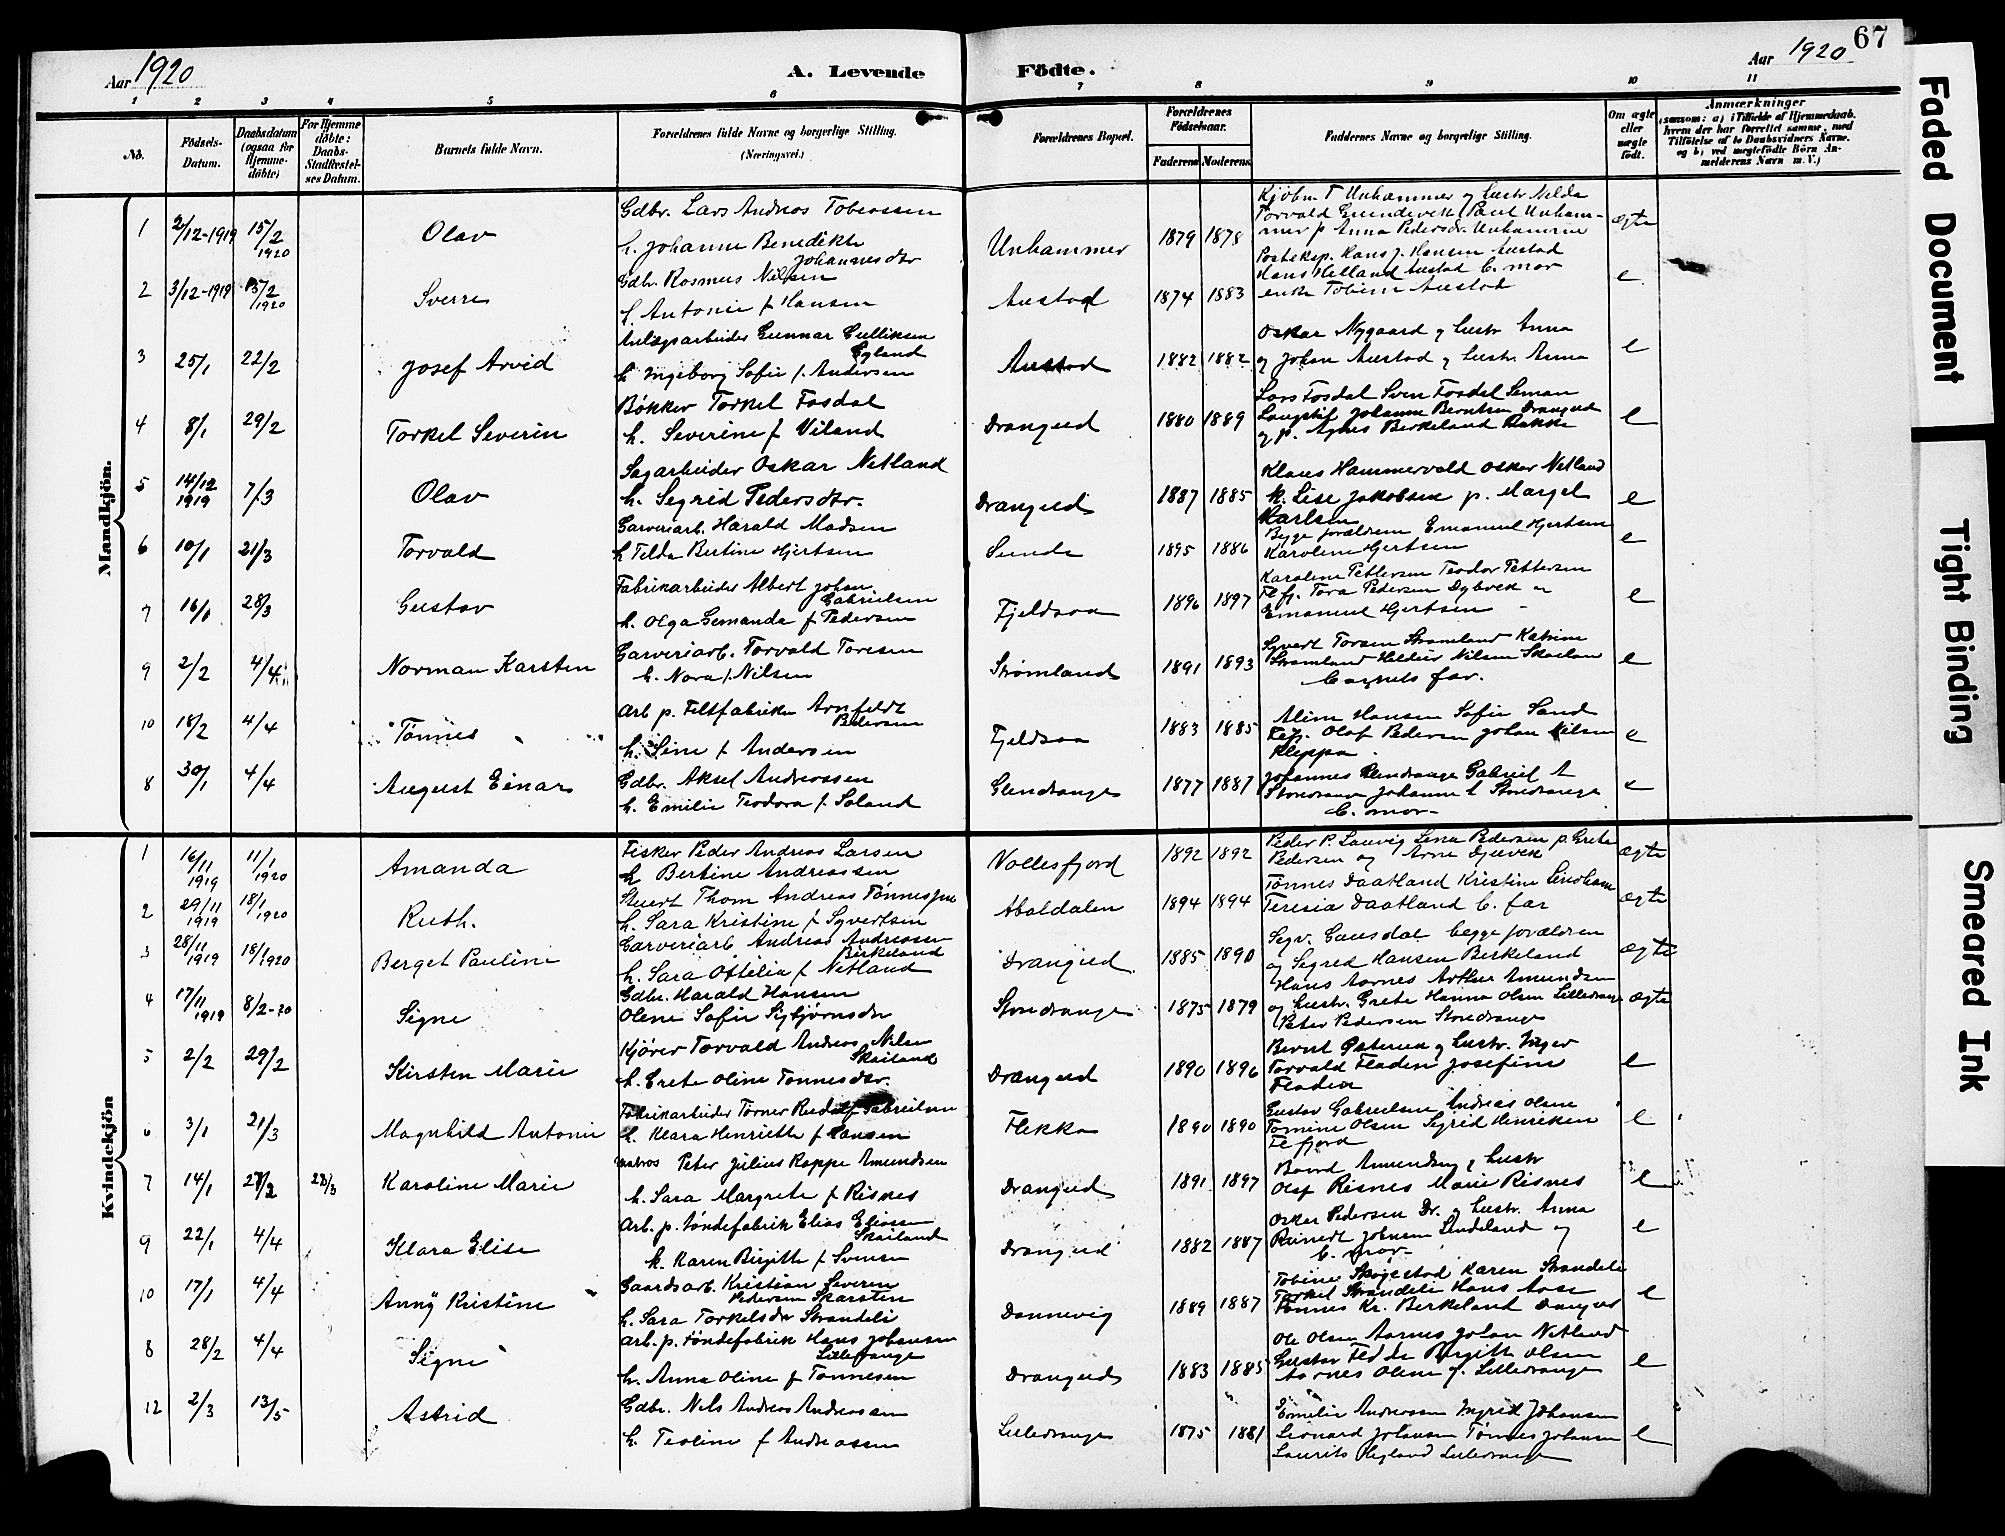 Aar 1920
A. Levende
Födte.
Aar 1920
67
1 2 3 4 5 6 7 8 9 10 11
No.
Födsels-
Datum.
Daabsdatum
(ogsaa for
Hjemme-
döbte)
For Hjemme
döbte:
Daabs-
Stadfæstel-
ses Datum.
Barnets fulde Navn.
Forældrenes fulde Navne og borgerlige Stilling.
(Næringsvei.)
Forældrenes Bopæl.
Forældrenes
Födselsaar.
Faderens Moderens
Faddernes Navne og borgerlige Stilling.
Om ægte
eller
uægte
født.
Anmærkninger
(saasom: a) i Tilfælde af Hjemmedaab.
hvem der har forrettet samme, med
Tilföielse af to Daabsvidners Navne.
og b) ved uægtefödte Börn An-
melderens Navn m. V.)
Mandkjön.
1 2/12-1919 15/2 1920 Olav
Gdbr. Lars Andreas Tobiassen
h. Johanne Benedikte
Johannesdtr
Unhammer 1879 1878
Torvald Paul Unham-
mer p Anna Pedersdr. Unhammer
ægte
2 3/12-1919 15/2 1920 Sverre
Gdbr. Rasmus Nilsen
h. Antonie f Hansen
Austad 1874 1883
Posteksp. Hans J. Hansen Austad
Hans Helland Austad b. mor
enke Tobine Austad
e
3 25/1 22/2 Josef Arvid
Anlægsarbeider Gunnar Gulliksen
Egland
h Ingeborg Sofie f. Andersen
Austad 1882 1882
Oskar Nygaard g hustr Anna
og Johan Austad g hustr. Anna
e
4 8/1 29/2 Torkel Severin
Bøkker Torkel Fosdal
h. Severine f Viland
Drangeid 1880 1889
Lars Fosdal Sven Fosdal
Johanne Berntsen Drangeid
og p. Agnes Birkeland Bakke
e
5 14/12 1919 7/3 Olav
Sagarbeider Oskar Netland
h. Segrid Pedersdtr.
Drangeid 1887 1885
Klaus Hammervold Oskar Netland
k. Lise Jakobsen p. Margel
Karlsen
e
6 10/1 21/3 Torvald
Garveriarb. Harald Madsen
h Tilda Bertine Hjertsen
Sunde 1895 1886
Begge forældrene Emanuel Hjertsen
Karoline Hjertsen
e
7 16/1 28/3 Gustav
Fabrikarbeider Albert Johan
Gabrielsen
h. Olga Gemanda f Pedersen
Fjeldsaa 1896 1897
Karoline Pettersen Teodor Pettersen
Tora Pedersen Dybvik
Emanuel Hjertsen
e
9 2/2 4/4 Norman Karsten
Garveriarb. Torvald Toresen
h. Nora f. Nilsen
Strømland 1891 1893
Syvert Torsen Strømland Katrine
Strømland Nilsen
Barnets far.
e
10 18/2 4/4 Tønnes
Arb p. Filtfabriken Arnfeldt
Pedersen
h. Sine f Andersen
Fjeldsaa 1883 1885
Aline Hansen Sofie Sand
Olaf Pedersen Johan Nilsen
Kleppa
e
8 30/1 4/4 August Einar
Gdbr. Aksel Andreassen
h. Emilie Teodora f. Soland
Glendrange 1877 1887
Johannes Glendrange Gabriel A
Storedrange Johanne Storedrange
b. mor
e
Kvindekjön
1 16/11 1919 11/1 1920 Amanda
Fisker Peder Andreas Larsen
h Bertine Andreassen
Vollesfjord 1892 1892
Peder P. Lauvig Lena Pedersen p. Grete
Pedersen og Arne Djuvik
ægte
2 29/11 1919 18/1 1920 Ruth.
Stuert Thom Andreas Tønnessen
h. Sara Kristine f Syvertsen
Abaldalen 1894 1894
Tønnes Daatland Kristine
Teresia Daatland b. far
ægte
3 28/11 1919 18/1 1920 Berget Pauline
Garveriarb Andreas Andreassen
Birkeland
h. Sara Ottilia f Netland
Drangeid 1885 1890
begge forældrene
og Segred Hansen Birkeland
ægte
4 17/11 1919 8/2-20 Signe
Gdbr. Harald Hansen
Olene Sofie Sigbjørnsdtr
Storedrange 1875 1879
Hans Aarnes Arthur Amundsen
og hustr. Grete Hanna Olsen Lilledrange
Peter Pedersen Storedrange
ægte
5 2/2 29/2 Kirsten Marie
Kjører Torvald Andreas Nilsen
Skailand
h. Grete Oline Tønnesdtr.
Drangeid 1890 1896
Bernt g hustr. Inger
Torvald Fladen Josefine
Fladen
e
6 3/1 21/3 Magnhild Antonie
Fabrikarbeider Tørner Rudolf Gabrielsen
h. Klara Henriette f Hansen
Flikka 1890 1890
Gustav Gabrielsen Andreas Olsen
Tomine Olsen Sigrid Henriksen
e
7 14/1 27/2 28/3 Karoline Marie
Peter Julius Roppe Amundsen
h. Sara Margrete f Risnes
Drangeid 1891 1897
Amundsen g hustr
Olaf Risnes Marie Risnes
e
9 22/1 4/4 Klara Elise
Arb. p. tøndefabrik Elias Eliassen
Skailand
h. Karen Birgitte f Svensen
Drangeid 1882 1887
Oskar Pedersen Dr. g hustr. Anna
Reinert Johnsen Lindeland og
b. mor
e
10 17/1 4/4 Anny Kristine
Gaardsarb. Kristian Severin
Pedersen Skarsten
h. Sara Torkelsdtr Strandeli
Dannevig 1889 1887
Tobine Skogestad Karen Strandeli
Torkel Strandeli Hans Aase
Tønnes Kr. Berkeland Dangeid
e
8 28/2 4/4 Signe
Arb. p. tøndefabrik Hans Johansen
Lilledrange
h. Anna Oline f Tønnesen
Drangeid 1883 1885
Ole Olsen Aarnes Johan Netland
Gustav Birgitte Olsen
Aarnes Oline J. Lilledrange
e
12 2/3 13/5 Astrid
Gdbr. Nils Andreas Andreassen
h. Teoline f Andreassen
Lilledrange 1875 1881
Emilie Andreassen Ingrid Johansen
Leonard Johansen Tønnes Johansen
Laurits Hegland Lilledrange
e
Faded Document
Tight Binding
Smeared Ink